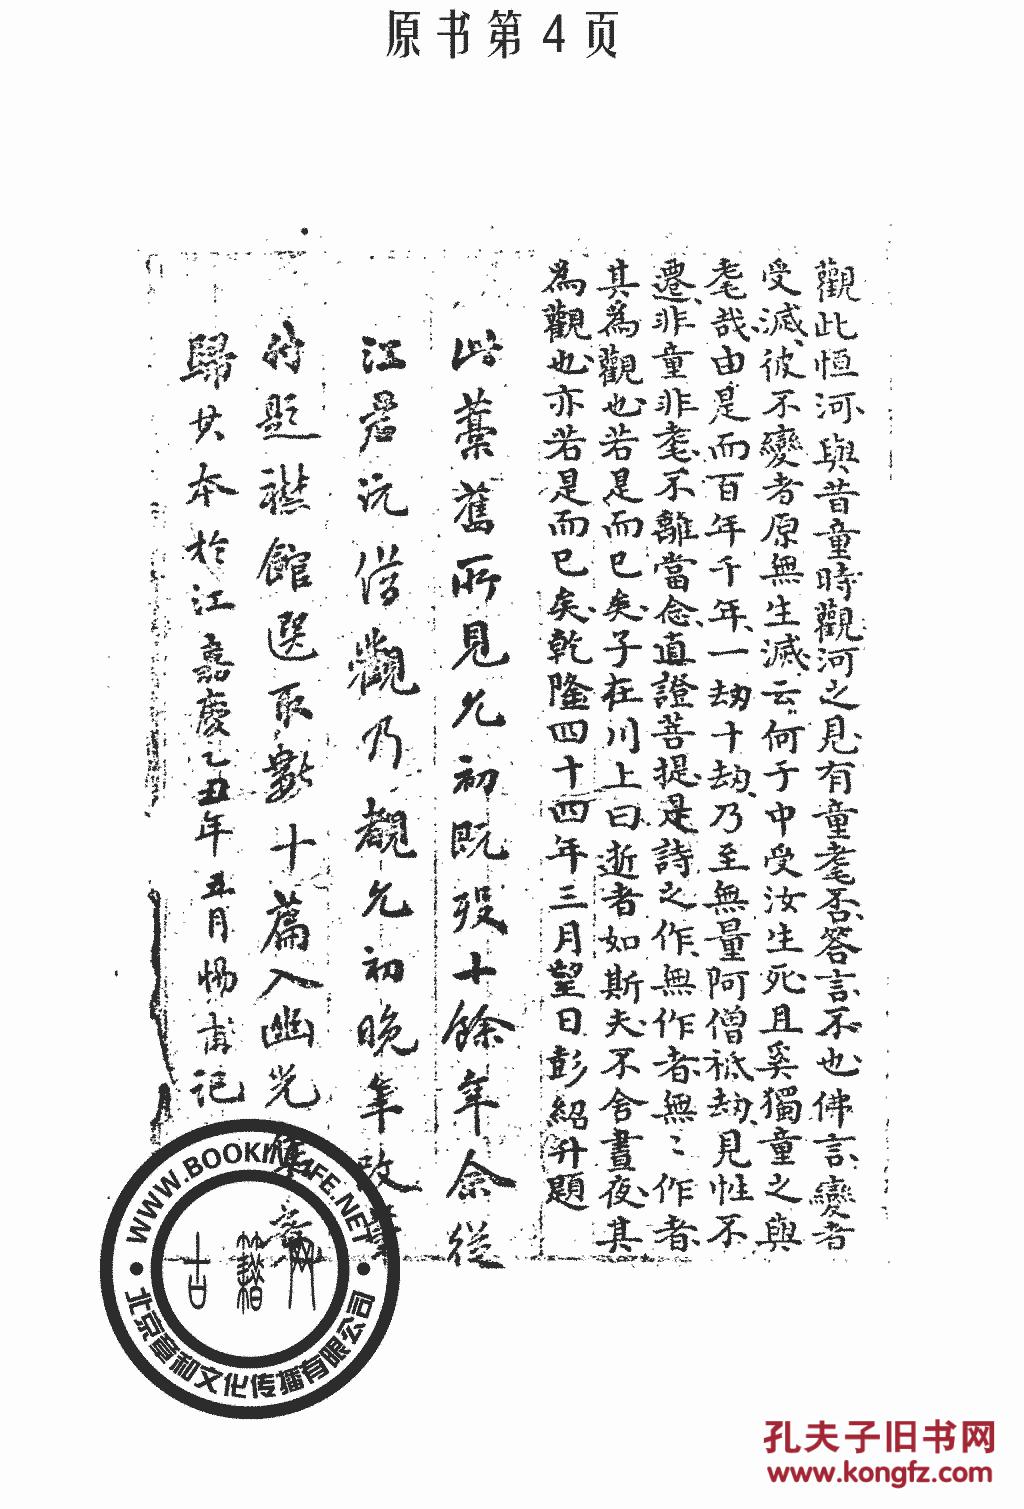 原书第4页
觀此恒河與昔童時觀河之見有童耄否答言不也佛言變者
受滅彼不變者原無生滅云何于中受汝生死且奚獨童之與
耄哉由是而百年千年一劫十劫乃至無量阿僧祇劫見性不
遷非童非耄不離當念直證菩提是詩之作無作者無〻作者
其為觀也若是而已矣子在川上曰逝者如斯夫不舍晝夜其
為觀也亦若是而已矣乾隆四十四年三月望日彭紹升題
此藁舊所見允初既歿十餘年余從
江君沅借觀乃覩允初晚年改
竹題禊館選取數十篇入幽光集
歸其本於江嘉慶乙丑年五月惕甫記
WWW.BOOKINLIFE.NET
古籍网
北京章和文化传播有限公司
孔夫子旧书网
www.kongfz.com